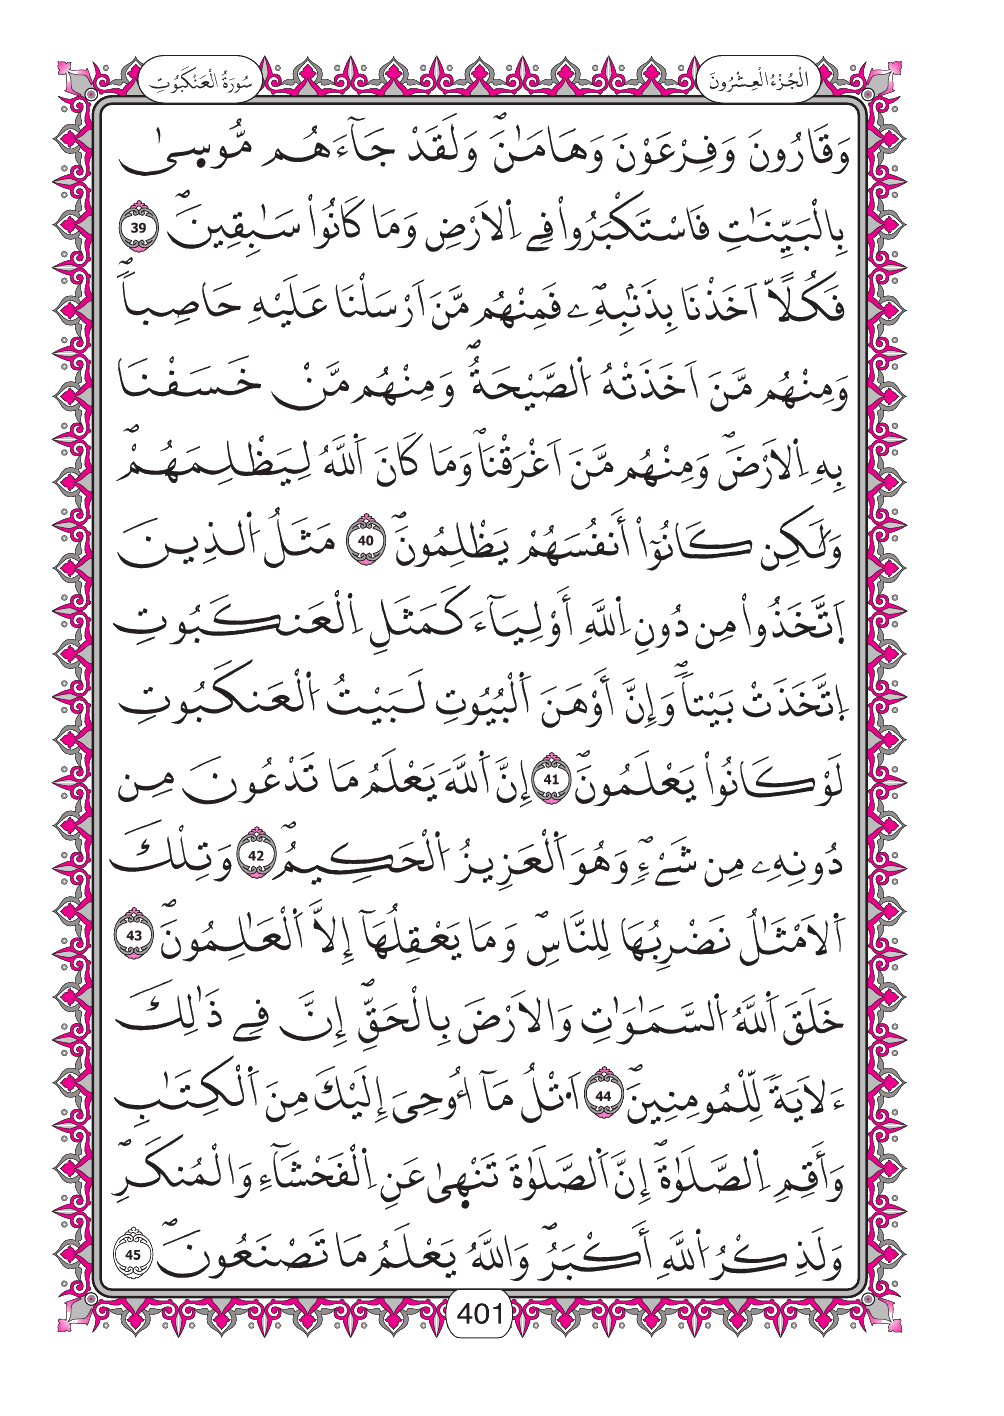 الْجُزْءُ الْعِشْرُونَ
سُورَةُ الْعَنكَبُوتِ
وَقَٰرُونَ وَفِرْعَوْنَ وَهَٰمَٰنَۖ وَلَقَدْ جَآءَهُم مُّوس۪ىٰ
بِالْبَيِّنَٰتِ فَاسْتَكْبَرُواْ فِے اِ۬لَارْضِ وَمَا كَانُواْ سَٰبِقِينَۖ 39
فَكُلّاً اَخَذْنَا بِذَنۢبِهِۦۖ فَمِنْهُم مَّنَ اَرْسَلْنَا عَلَيْهِ حَاصِباٗۖ
وَمِنْهُم مَّنَ اَخَذَتْهُ اُ۬لصَّيْحَةُۖ وَمِنْهُم مَّنْ خَسَفْنَا
بِهِ اِ۬لَارْضَۖ وَمِنْهُم مَّنَ اَغْرَقْنَاۖ وَمَا كَانَ اَ۬للَّهُ لِيَظْلِمَهُمْۖ
وَلَٰكِن كَانُوٓاْ أَنفُسَهُمْ يَظْلِمُونَۖ 40 مَثَلُ اُ۬لذِينَ
اَ۪تَّخَذُواْ مِن دُونِ اِ۬للَّهِ أَوْلِيَآءَ كَمَثَلِ اِ۬لْعَنكَبُوتِ
اِ۪تَّخَذَتْ بَيْتاٗۖ وَإِنَّ أَوْهَنَ اَ۬لْبُيُوتِ لَبَيْتُ اُ۬لْعَنكَبُوتِ
لَوْ كَانُواْ يَعْلَمُونَۖ 41 إِنَّ اَ۬للَّهَ يَعْلَمُ مَا تَدْعُونَ مِن
دُونِهِۦ مِن شَےْءٖۖ وَهُوَ اَ۬لْعَزِيزُ اُ۬لْحَكِيمُۖ 42 وَتِلْكَ
اَ۬لَامْثَٰلُ نَضْرِبُهَا لِلنَّاسِۖ وَمَا يَعْقِلُهَآ إِلَّا اَ۬لْعَٰلِمُونَۖ 43
خَلَقَ اَ۬للَّهُ اُ۬لسَّمَٰوَٰتِ وَالَارْضَ بِالْحَقِّۖ إِنَّ فِے ذَٰلِكَ
ءَلَايَةٗ لِّلْمُومِنِينَۖ 44 اَ۟تْلُ مَآ أُوحِيَ إِلَيْكَ مِنَ اَ۬لْكِتَٰبِ
وَأَقِمِ اِ۬لصَّلَوٰةَۖ إِنَّ اَ۬لصَّلَوٰةَ تَنْه۪ىٰ عَنِ اِ۬لْفَحْشَآءِ وَالْمُنكَرِۖ
وَلَذِكْرُ اُ۬للَّهِ أَكْبَرُۖ وَاللَّهُ يَعْلَمُ مَا تَصْنَعُونَۖ 45
401